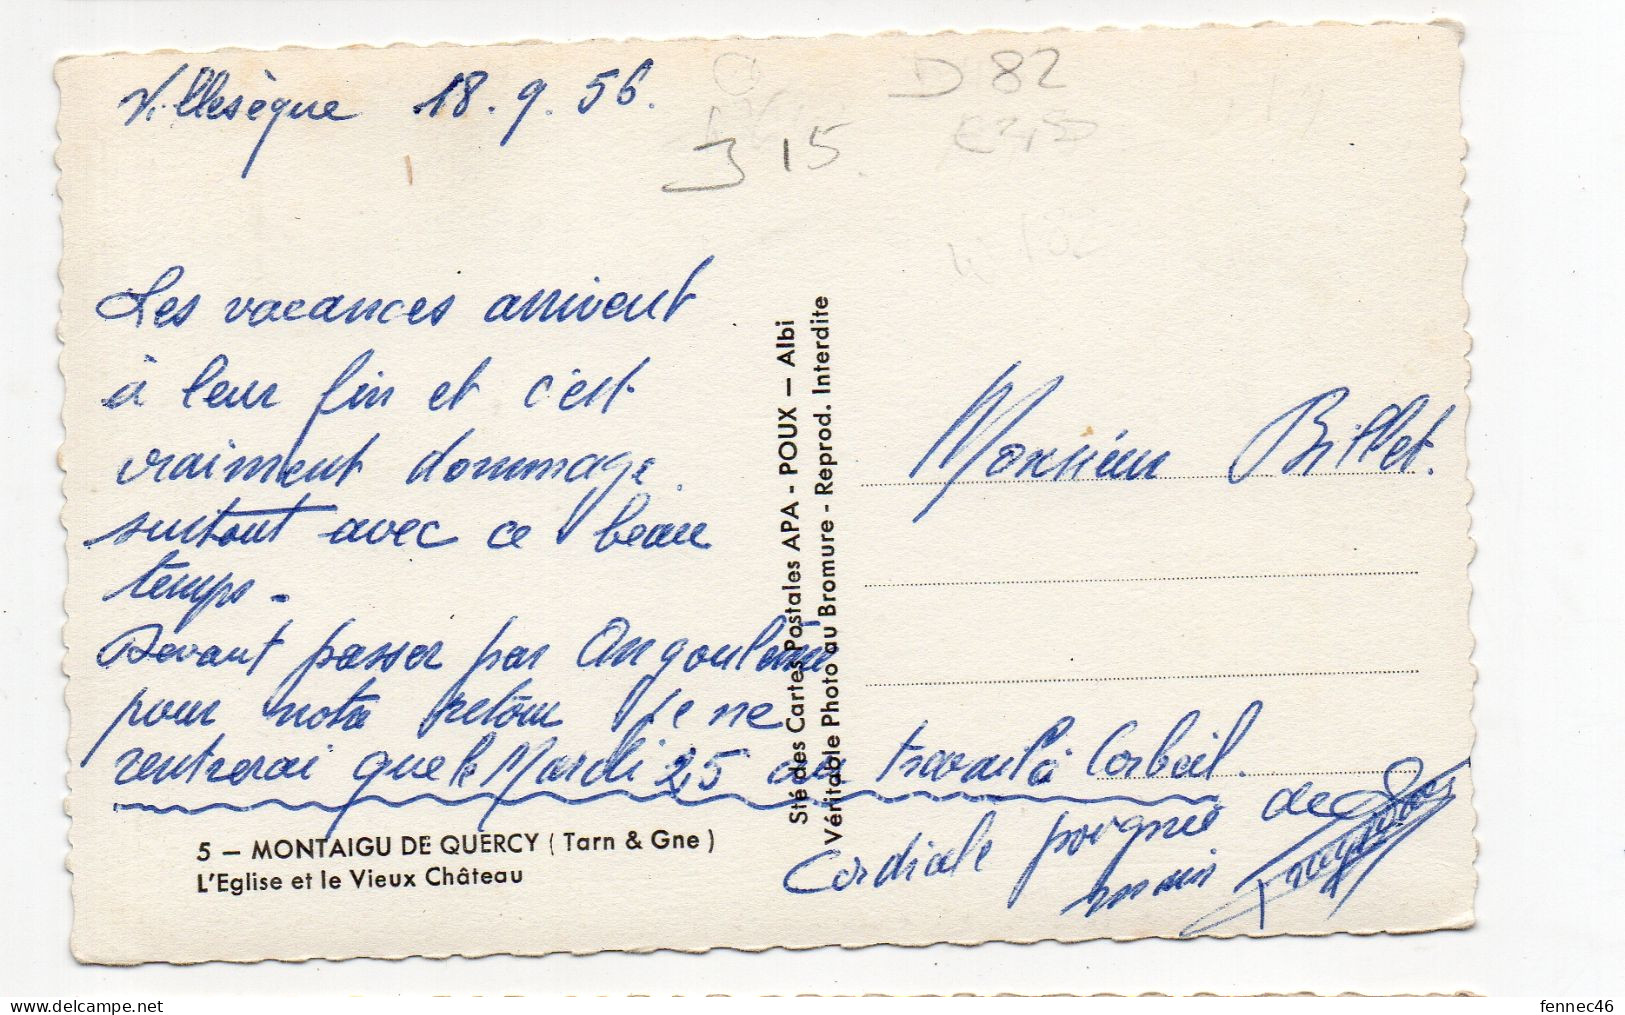 Villesèque 18.9.56.
D 82
J 15
Les vacances arrivent
à leur fin et c'est
vraiment dommage
surtout avec ce beau
temps -
Devant passer par Angoulême
pour notre retour je ne
rentrerai que le Mardi 25 au travail à Corbeil.
Cordiale poignée de
main
5 — MONTAIGU DE QUERCY ( Tarn & Gne )
L'Eglise et le Vieux Château
Sté des Cartes Postales APA - POUX — Albi
Véritable Photo au Bromure - Reprod. Interdite
Monsieur Billet.
delcampe.net
fennec46